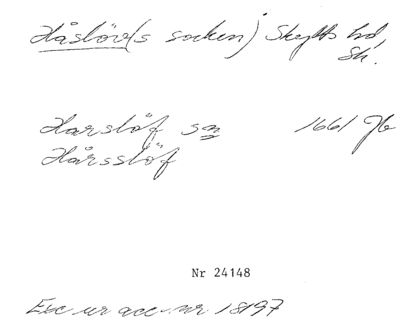 Håslöv(s socken) Skytts hd
Sk.
Harslöf sn 1661 Jb
Hårsslöf
Nr 24148
Exc ur acc.nr 18197